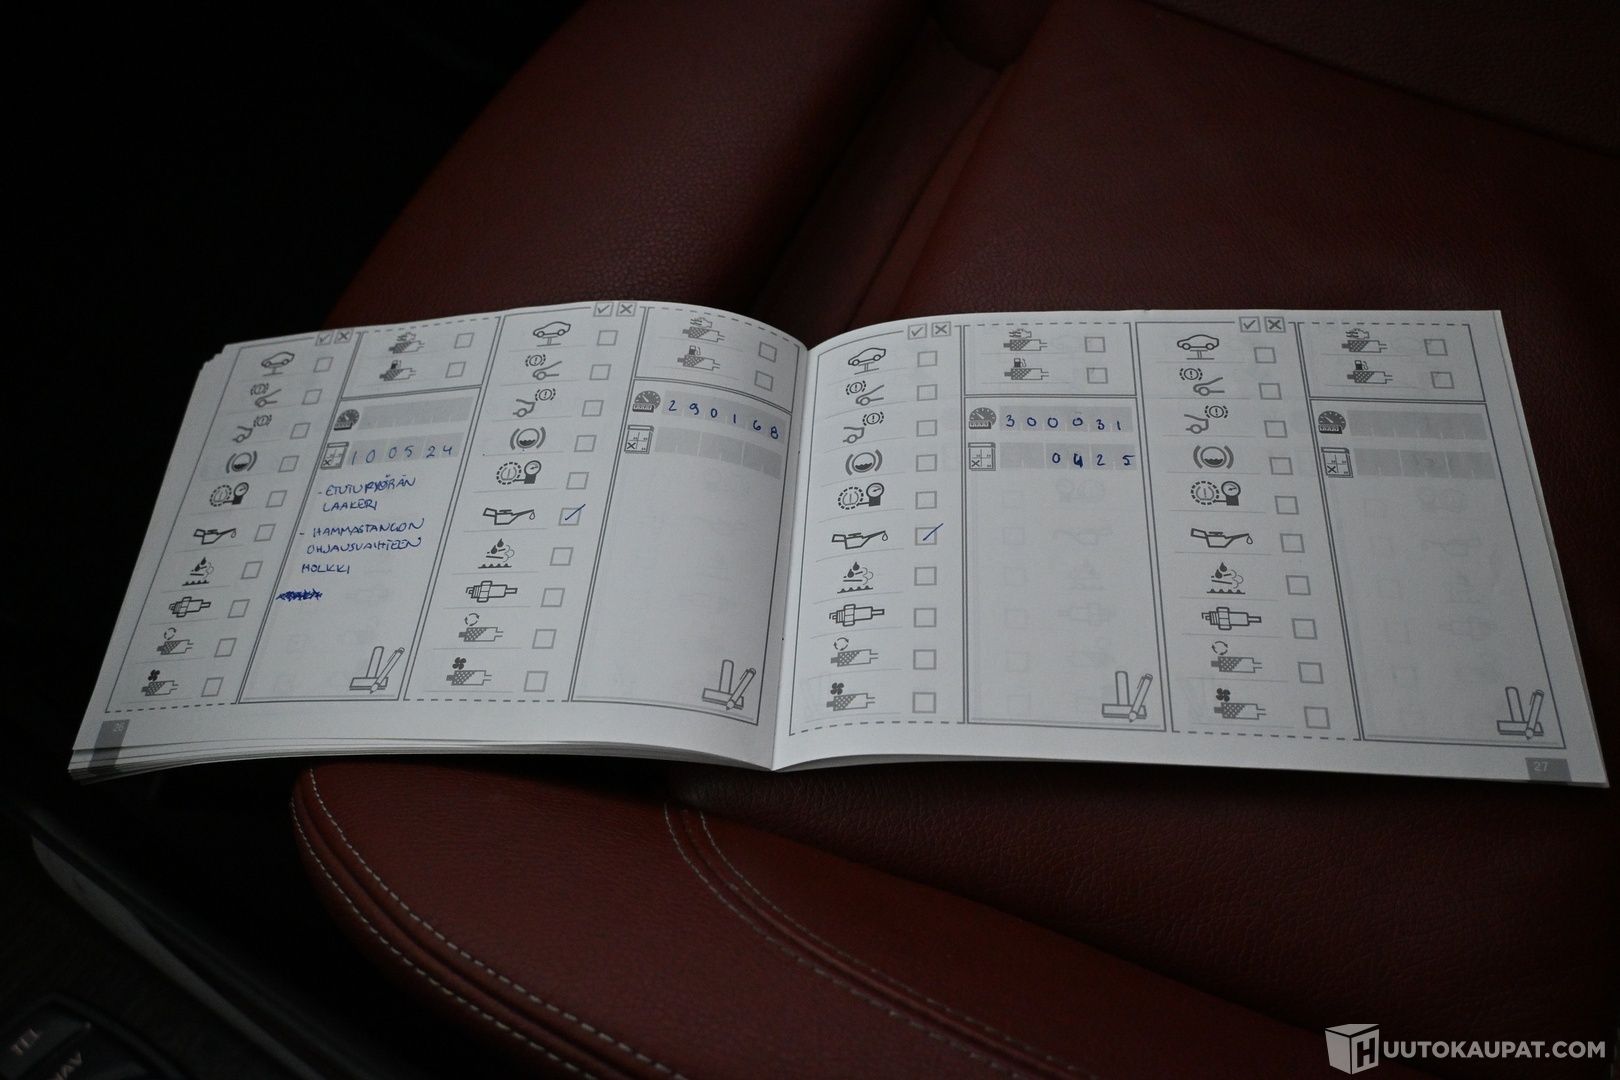 100524
- ETUTUPYÖRÄN
LAAKERI
- HAMMASTANGON
OHJAUSVAIHTEEN
HOLKKI
290168
300031
0425
26
27
TEL
NAV
HUUTOKAUPAT.COM